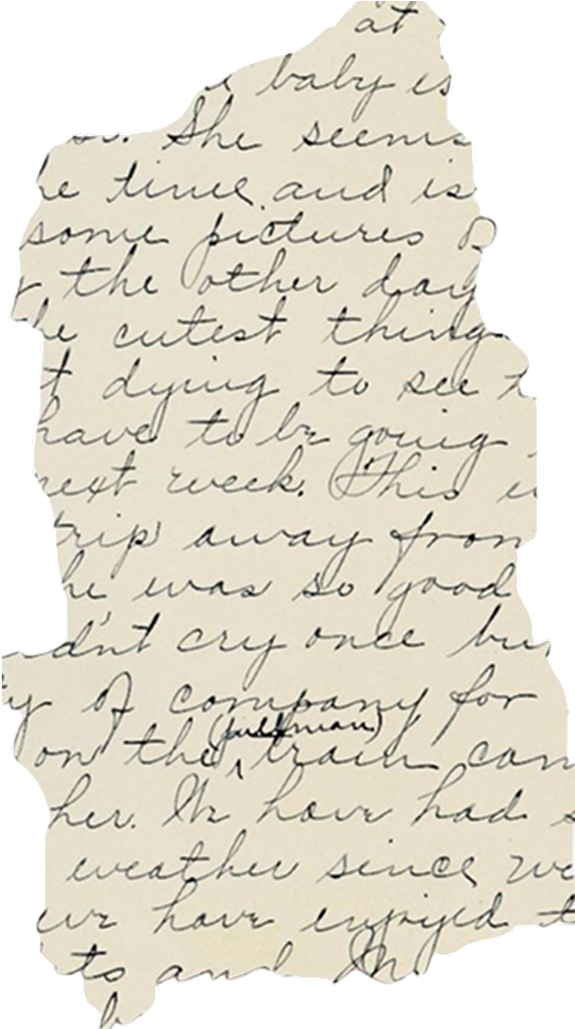 at
baby is
so. She seems
he time and is
some pictures of
the other day
he cutest thing
t dying to see
have to be going
next week. This
trip away from
he was so good
dn't cry once bu
y of company for
on the (pullman) train can
her. We have had s
weather since we
we have enjoyed t
ts and